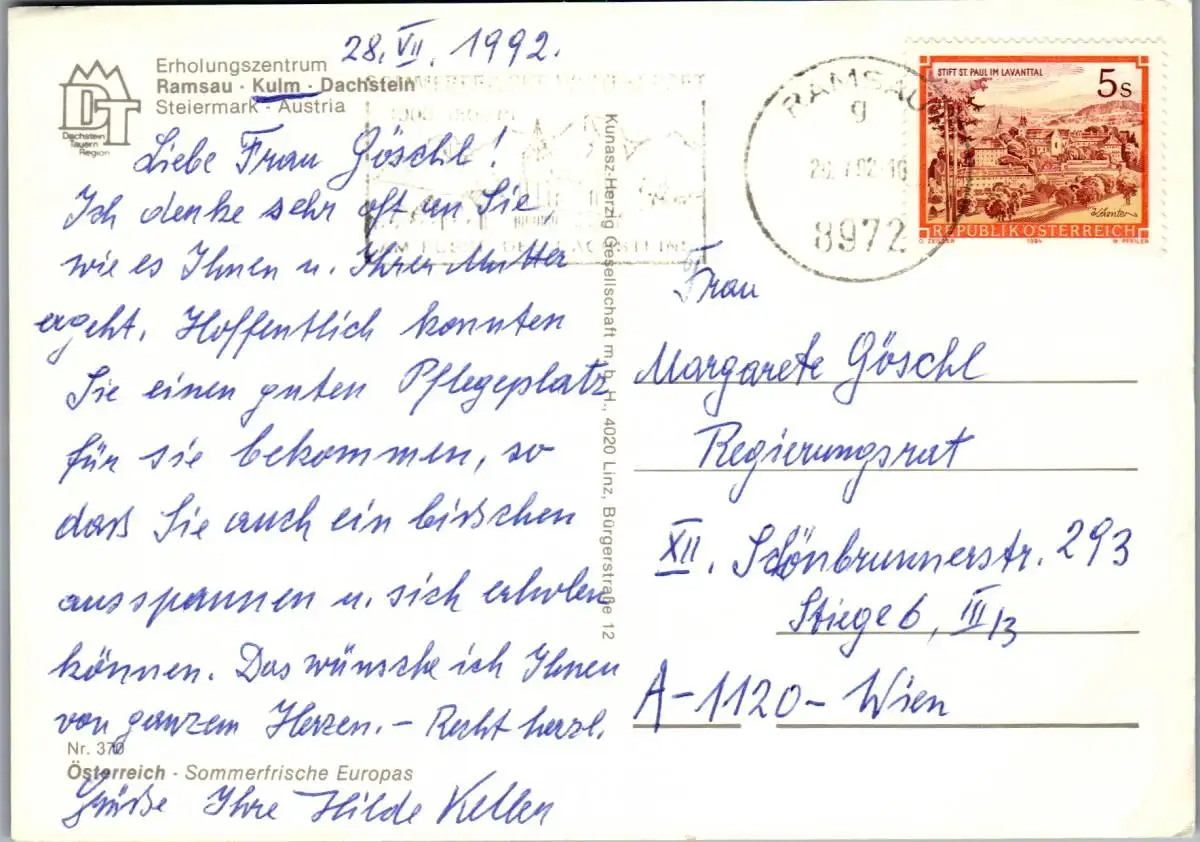 28. VII. 1992.
Erholungszentrum
Ramsau · Kulm · Dachstein
Steiermark · Austria
DT
Dachstein
Tauern
Region
Liebe Frau Göschl!
Ich denke sehr oft an Sie,
wie es Ihnen u. Ihrer Mutter
ergeht. Hoffentlich konnten
Sie einen guten Pflegeplatz
für sie bekommen, so
daß Sie auch ein bißchen
ausspannen u. sich erholen
können. Das wünsche ich Ihnen
von ganzem Herzen. – Recht herzl.
Nr. 370
Österreich · Sommerfrische Europas
Grüße Ihre Hilde Keller
Kunasz-Herzig Gesellschaft m. b. H., 4020 Linz, Bürgerstraße 12
RAMSAU
g
8972
STIFT ST. PAUL IM LAVANTTAL
5s
REPUBLIK ÖSTERREICH
O. ZEILLER 1984 W. PFEILER
Frau
Margarete Göschl
Regierungsrat
XII. Schönbrunnerstr. 293
Stiege 6, III/3
A-1120-Wien